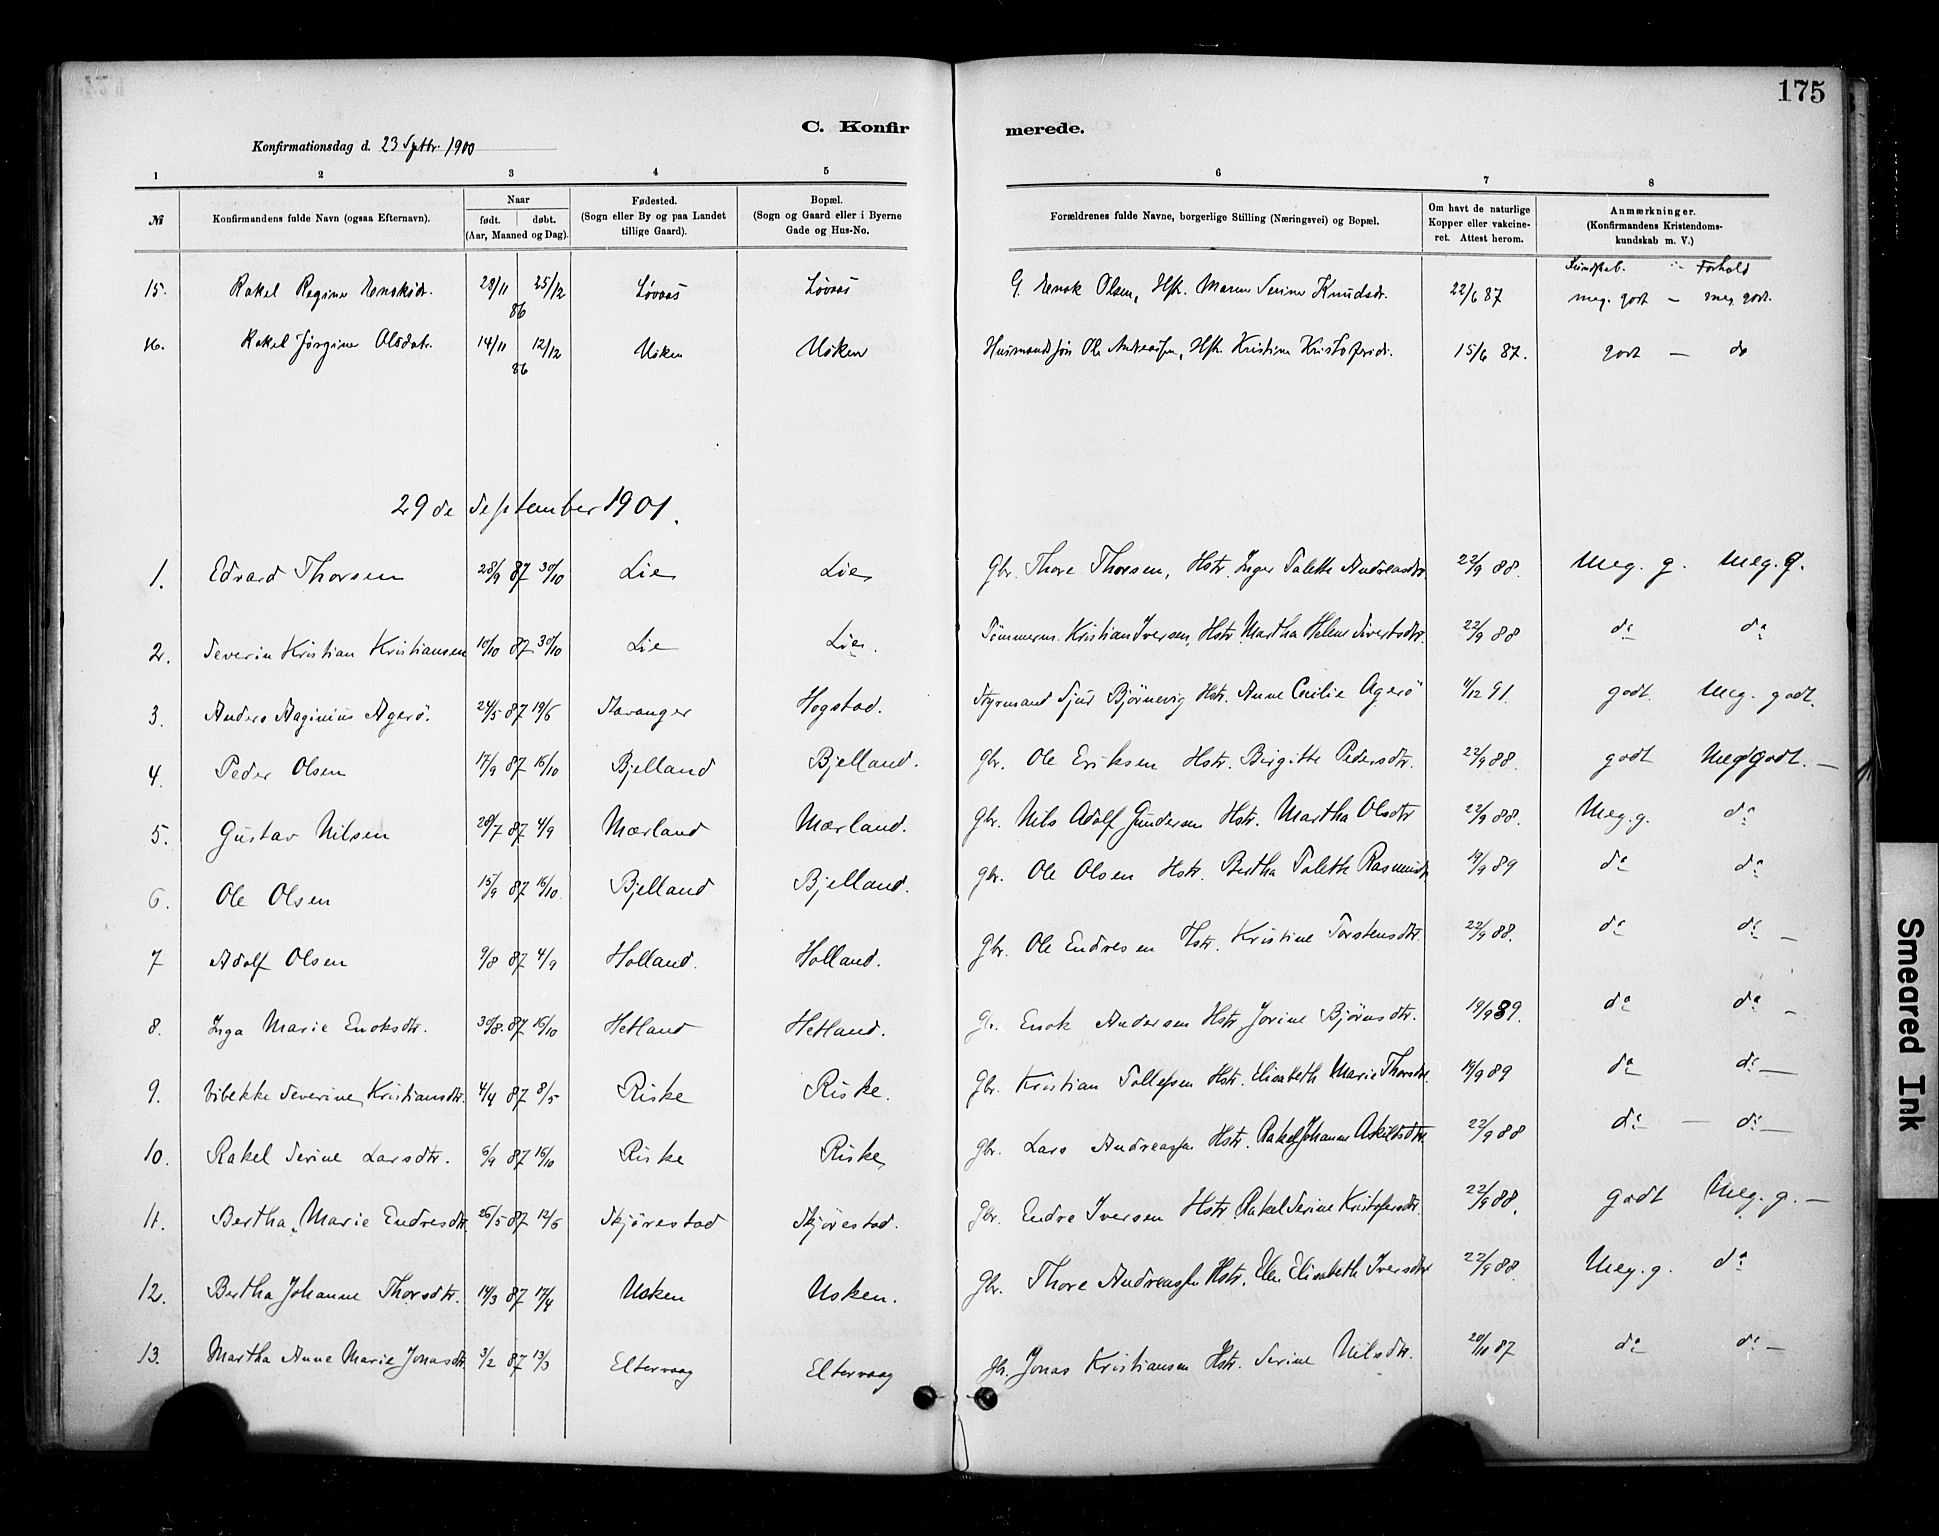 175
C. Konfir merede.
Konfirmationsdag d. 23 Septbr. 1900
1 2 3 4 5 6 7 8
№ Konfirmandens fulde Navn (ogsaa Efternavn). Naar født. døbt. (Aar, Maaned og Dag). Fødested. (Sogn eller By og paa Landet tillige Gaard). Bopæl. (Sogn og Gaard eller i Byerne Gade og Hus-No. Forældrenes fulde Navne, borgerlige Stilling (Næringsvei) og Bopæl. Om havt de naturlige Kopper eller vakcineret. Attest herom. Anmærkninger. (Konfirmandens Kristendomskundskab m. V.)
Kundskab. Forhold
15. Rakel Regine Enoksdr. 28/11 25/12 86 Løvaas Løvaas G. Enok Olsen, Hstr. Maren Serine Knudsdr. 22/6 87 meg. godt — meg. godt.
16. Rakel Jørgine Olsdatr. 14/11 12/12 86 Usken Usken Husmandssøn Ole Andreassen, Hstr. Kristine Kristofersdr. 15/6 87. godt — do
29de September 1901.
1. Edvard Thorsen 28/9 87 30/10 Lie Lie Gbr. Thore Thorsen, Hstr. Inger Talette Andreasdtr 22/9 88. Meg. g. Meg. g.
2. Severin Kristian Kristiansen 10/10 87 30/10 Lie Lie. Tømmerm. Kristian Iversen, Hstr. Martha Helene Sivertsdtr. 22/9 88 do do
3. Anders Aaginius Agerö. 24/5 87 19/6 Stavanger Hogstad. Styrmand Sjur Bjørnevig Hstr. Anne Cecilie Agerö 11/12 91. godt. Meg. godt.
4. Peder Olsen 17/9 87 16/10 Bjelland Bjelland. Gbr. Ole Eriksen Hstr. Birgitte Pedersdtr. 22/9 88. godt Meg godt. —
5. Gustav Nilsen 28/7 87 4/9 Mærland Mærland. Gbr. Nils Adolf Gundersen Hstr. Martha Olsdtr 22/9 88. Meg. g. do
6. Ole Olsen 15/9 87 16/10 Bjelland Bjelland. Gbr. Ole Olsen Hstr. Bertha Talette Rasmusdr 19/9 89 do do
7 Adolf Olsen 9/8 87 4/9 Holland. Holland. Gbr. Ole Endresen Hstr. Kristine Torstensdtr. 22/9 88. do do —
8. Inga Marie Enoksdtr. 30/8. 87 16/10 Hetland Hetland. Gbr. Enok Andersen Hstr. Jorine Bjørnsdtr. 19/9 89. do do —
9. Vibekke Severine Kristiansdtr. 4/4 87 8/5 Riske Riske. Gbr. Kristian Tollefsen Hstr. Elisabeth Marie Thorsdtr. 19/9 89 do do —
10. Rakel Serine Larsdtr. 6/9 87 16/10 Riske Riske Gbr. Lars Andreassen Hstr. Rakel Johanne Askildsdtr. 22/9 88 do — do —
11. Bertha Marie Endresdtr. 26/5 87 12/6 Skjørestad Skjørestad. Gbr. Endre Iversen Hstr. Rakel Serine Kristofersdtr. 22/9 88. godt Meg. g. —
12. Bertha Johanne Thorsdtr. 14/3 87 17/4 Usken Usken. Gbr. Thore Andreassen Hstr. Elen Elisabeth Iversdtr 22/9 88 Meg. g. do
13. Martha Anne Marie Jonasdtr. 3/2 87 13/3 Eltervaag Eltervaag Gbr. Jonas Kristiansen Hstr. Serine Nilsdtr. 20/11 87 do do —
Smeared Ink